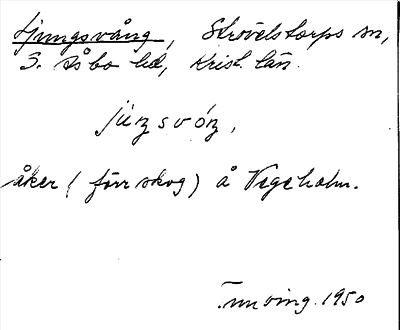 Ljungsvång, Strövelstorps sn,
S. Åsbo hd, Krist. län.
júŋsvóŋ,
åker (förr skog) å Vegeholm.
Inving. 1950